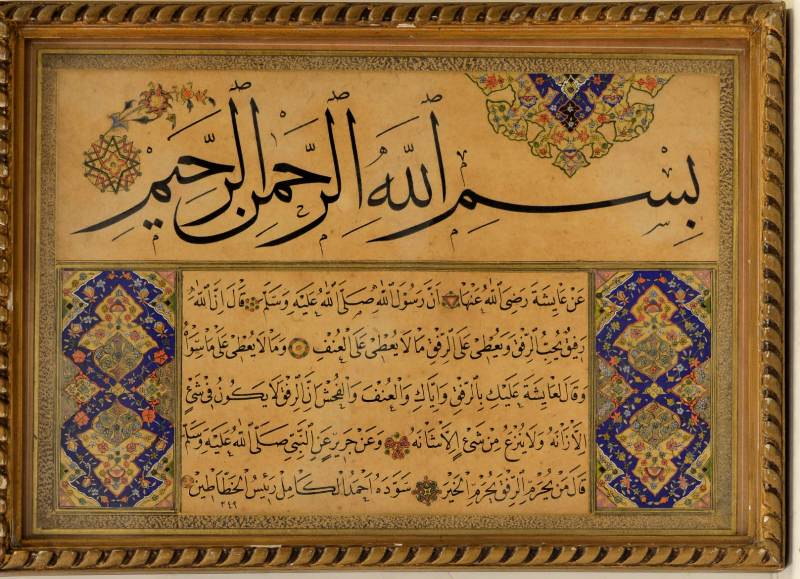 بِسْمِ اللّٰهِ الرَّحْمٰنِ الرَّحِيمِ
عَنْ عَايِشَةَ رَضِىَ اللّٰهُ عَنْهَا اَنَّ رَسُولَ اللّٰهِ صَلَّى اللّٰهُ عَلَيْهِ وَسَلَّمَ قَالَ اِنَّ اللّٰهَ
رَفِيقٌ يُحِبُّ الرِّفْقَ وَيُعْطٰى عَلَى الرِّفْقِ مَا لَا يُعْطٰى عَلَى الْعُنْفِ وَمَا لَا يُعْطٰى عَلٰى مَا سِوَاهُ
وَقَالَ لِعَايِشَةَ عَلَيْكِ بِالرِّفْقِ وَاِيَّاكِ وَالْعُنْفَ وَالْفُحْشَ اِنَّ الرِّفْقَ لَا يَكُونُ فِى شَىْءٍ
اِلَّا زَانَهُ وَلَا يُنْزَعُ مِنْ شَىْءٍ اِلَّا شَانَهُ وَعَنْ جَرِيرٍ عَنِ النَّبِىِّ صَلَّى اللّٰهُ عَلَيْهِ وَسَلَّمَ
قَالَ مَنْ يُحْرَمِ الرِّفْقَ يُحْرَمِ الْخَيْرَ سَوَّدَهُ اَحْمَدُ الْكَامِلُ رَئِيسُ الْخَطَّاطِينَ
٣٤٩